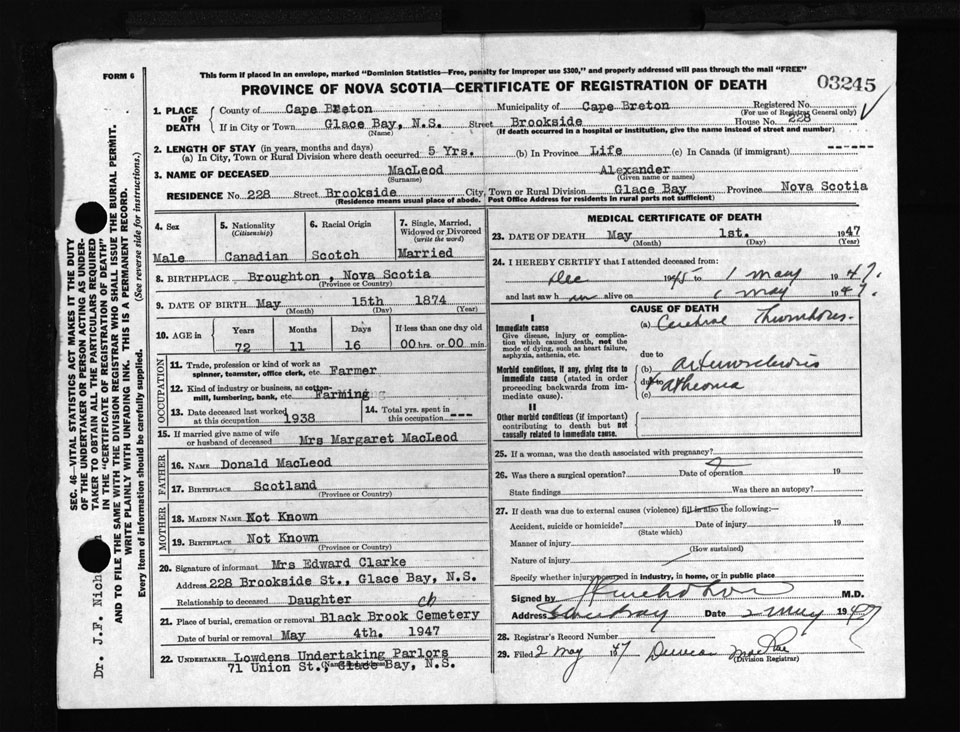 FORM 6
This form if placed in an envelope, marked "Dominion Statistics—Free, penalty for improper use $300," and properly addressed will pass through the mail "FREE"
PROVINCE OF NOVA SCOTIA—CERTIFICATE OF REGISTRATION OF DEATH
03245
1. PLACE OF DEATH
County of Cape Breton Municipality of Cape Breton Registered No.
(For use of Registrar General only)
If in City or Town Glace Bay, N.S. Street Brookside House No. 228
(Name) (If death occurred in a hospital or institution, give the name instead of street and number)
2. LENGTH OF STAY (in years, months and days)
(a) In City, Town or Rural Division where death occurred 5 Yrs. (b) In Province Life (c) In Canada (if immigrant) ------
3. NAME OF DECEASED MacLeod Alexander
(Surname) (Given name or names)
RESIDENCE No. 228 Street Brookside City, Town or Rural Division Glace Bay Province Nova Scotia
(Residence means usual place of abode. Post Office Address for residents in rural parts not sufficient)
4. Sex
Male
5. Nationality
(Citizenship)
Canadian
6. Racial Origin
Scotch
7. Single, Married, Widowed or Divorced
(write the word)
Married
8. BIRTHPLACE Broughton, Nova Scotia
(Province or Country)
9. DATE OF BIRTH May 15th 1874
(Month) (Day) (Year)
10. AGE in
Years Months Days If less than one day old
72 11 16 00 hrs. or 00 min.
OCCUPATION
11. Trade, profession or kind of work as
spinner, teamster, office clerk, etc. Farmer
12. Kind of industry or business, as cotton-
mill, lumbering, bank, etc. Farming
13. Date deceased last worked
at this occupation 1938
14. Total yrs. spent in
this occupation ---
15. If married give name of wife
or husband of deceased Mrs Margaret MacLeod
FATHER
16. NAME Donald MacLeod
17. BIRTHPLACE Scotland
(Province or Country)
MOTHER
18. MAIDEN NAME Not Known
19. BIRTHPLACE Not Known
(Province or Country)
20. Signature of informant Mrs Edward Clarke
Address 228 Brookside St., Glace Bay, N.S.
Relationship to deceased Daughter
21. Place of burial, cremation or removal Black Brook Cemetery
Date of burial or removal May 4th. 1947
22. UNDERTAKER Lowdens Undertaking Parlors
71 Union St., Glace Bay, N.S.
MEDICAL CERTIFICATE OF DEATH
23. DATE OF DEATH May 1st. 1947
(Month) (Day) (Year)
24. I HEREBY CERTIFY that I attended deceased from:
Dec 1945 to 1 May 1947.
and last saw h im alive on 1 May 1947.
CAUSE OF DEATH
I
Immediate cause
Give disease, injury or complication which caused death, not the mode of dying, such as heart failure, asphyxia, asthenia, etc.
(a) Cerebral Thrombosis
due to
Morbid conditions, if any, giving rise to immediate cause (stated in order proceeding backwards from immediate cause).
(b) Arteriosclerosis
due to
(c)
II
Other morbid conditions (if important) contributing to death but not causally related to immediate cause.
25. If a woman, was the death associated with pregnancy?
26. Was there a surgical operation? Date of operation 19
State findings Was there an autopsy?
27. If death was due to external causes (violence) fill in also the following:—
Accident, suicide or homicide? Date of injury 19
(State which)
Manner of injury
(How sustained)
Nature of injury
Specify whether injury occurred in industry, in home, or in public place
Signed by M.D.
Address Glace Bay Date 2 May 1947
28. Registrar's Record Number
29. Filed 2 May 1947 Duncan MacRae
(Division Registrar)
SEC. 46—VITAL STATISTICS ACT MAKES IT THE DUTY
OF THE UNDERTAKER OR PERSON ACTING AS UNDER-
TAKER TO OBTAIN ALL THE PARTICULARS REQUIRED
IN THE "CERTIFICATE OF REGISTRATION OF DEATH"
AND TO FILE THE SAME WITH THE DIVISION REGISTRAR WHO SHALL ISSUE THE BURIAL PERMIT.
WRITE PLAINLY WITH UNFADING INK. THIS IS A PERMANENT RECORD.
Every item of information should be carefully supplied. (See reverse side for instructions.)
Dr. J.F. Nich